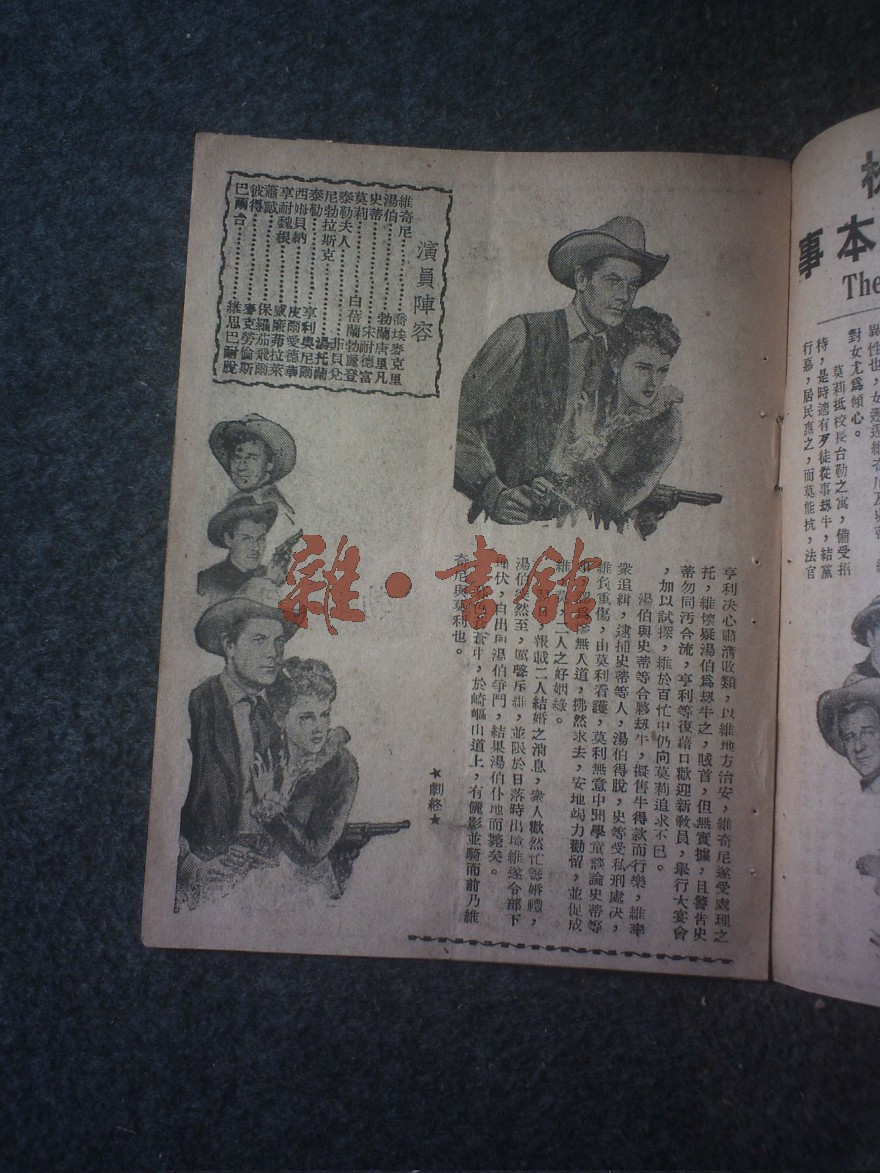 本
事
The
對女尤爲傾心。
莫莉抵校長台勒之寓，備受招
待，是時適有歹徒從事刼牛，結黨
行慕，居民惠之，而莫能抗，法官
亨利决心肅清敗類，以維地方治安，維奇尼遂受處理之
托，維懷疑湯伯爲刼牛之，賊首，但無實據，且警告史
蒂勿同汚合流，亨利等復藉口歡迎新敎員，舉行大宴會
，加以試探，維於百忙中仍向莫莉追求不已。
湯伯與史蒂等合夥刼牛，擬售牛得款而行樂，維率
衆追緝，逮捕史蒂等人，湯伯得脫，史等受私刑處决，
維負重傷，由莫利看護，莫利無意中聞學童談論史蒂等
慘無人道，拂然求去，安地竭力勸留，並促成
二人之好姻緣。
報載二人結婚之消息，衆人歡然忙籌婚禮，
湯伯突然至，厲聲斥維，並限於日落時出境維遂令部下
伏，自出與湯伯爭鬥，結果湯伯仆地而斃矣。
蒼中，於崎嶇山道上，有儷影並騎而前乃維
奇尼與莫利也。
★劇終★
演員陣容
維奇尼……喬埃麥克里
湯伯……勃蘭唐里凡
史蒂……宋耐德富
莫莉……白蓓蘭勃麗登
泰勒夫人……菲貝兌
尼勃拉斯克……湯托蘭
泰勒……亨利奧尼爾
西姆貝納……皮爾愛德華
亨耐魏根……威廉弗拉萊
蕭戚……保羅茄飛爾
彼得……麥克勞倫斯
巴爾台……維思巴耐脫
雜·書館